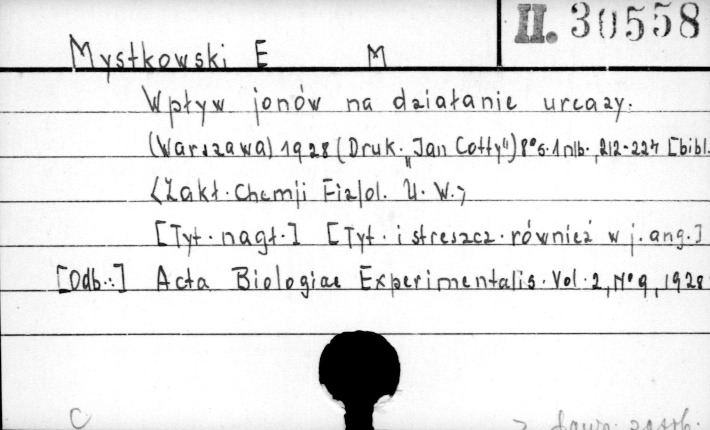 II. 30558
Mystkowski E M
Wpływ jonów na działanie ureazy.
(Warszawa) 1928 (Druk. „Jan Cotty") 8° s. 1 nlb., 212-224 [bibl.
<Zakł. Chemji Fizjol. U. W.>
[Tyt. nagł.] [Tyt. i streszcz. również w j. ang.]
[Odb.:] Acta Biologiae Experimentalis. Vol. 2, N° 9, 1928
C
z dawn. zasob.